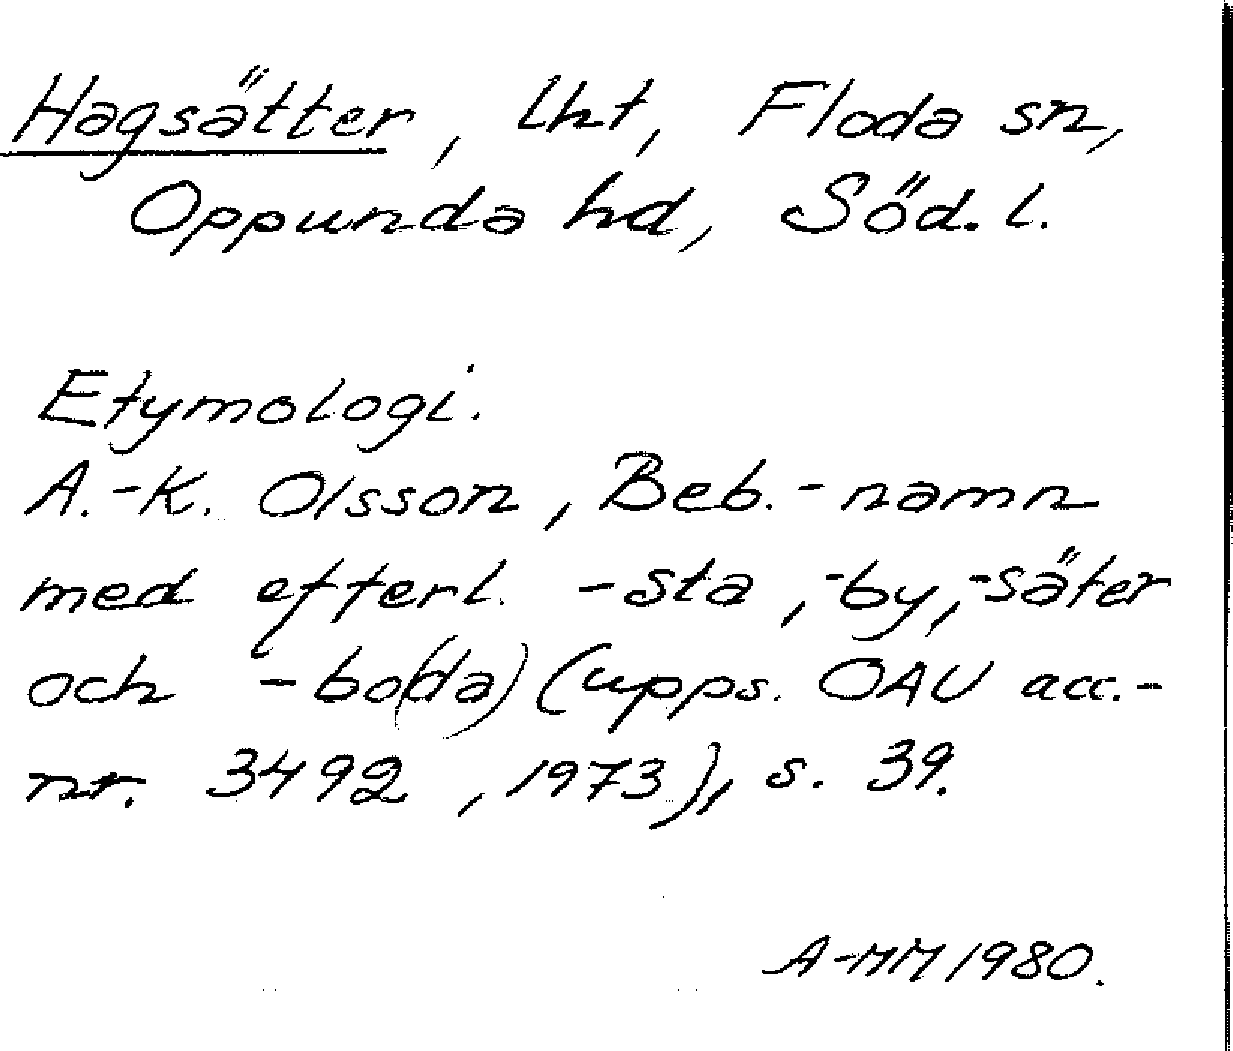 Hagsätter, Lht, Floda sn,
Oppunda hd, Söd.l.
Etymologi.
A.-K. Olsson, Beb.-namn
med efterl. -sta, -by, -säter
och -bo(da) (upps. OAU acc.-
nr. 3492, 1973), s. 39.
A-MM 1980.